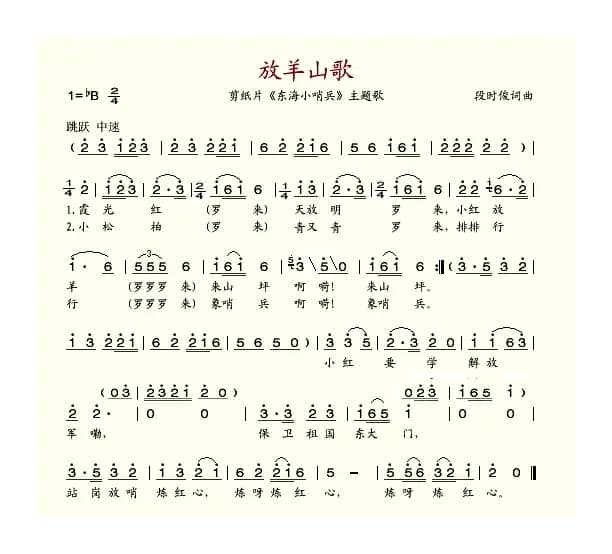 放羊山歌
1=♭B 2/4 剪纸片《东海小哨兵》主题歌 段时俊词曲
跳跃 中速
( 2 3 1 2 3 | 2 3 2 2 1 | 6 2 1 2 1 6 | 5 6 1 6 1 | 2 2 2 2 2 ) |
1/4 2 | 1 2 3 | 2 · 3 | 2/4 1 6 1 6 | 1/4 1 3 | 2 · 3 | 2/4 1 6 1 6 | 2 2 2 6 · 2 |
1.霞 光 红 (罗 来) 天放 明 罗 来,小红 放
2.小 松 柏 (罗 来) 青又 青 罗 来,排排 行
1 · 6 | 5 5 5 6 | 1 6 1 6 | 3 5 0 | 1 6 1 6 :‖ ( 3 · 5 3 2 |
羊 (罗罗罗 来) 来山 坪 啊 唠! 来山 坪。
行 (罗罗罗 来) 象哨 兵 啊 唠! 象哨 兵。
1 3 2 2 1 | 6 2 1 2 1 6 | 5 6 5 0 ) | 3 3 5 | 2 · 3 2 0 | 1 1 6 3 |
小红 要 学 解放
( 0 3 2 3 2 1 2 0 ) ( 0 2 3 1 6 5 1 )
2 2 · | 0 0 | 3 · 3 2 3 | 1 6 5 1 | 0 0 |
军 嘞, 保 卫 祖国 东大 门,
3 · 5 3 2 | 1 3 2 1 | 6 2 2 1 6 | 5 – | 5 5 6 3 2 1 | 2 0 ‖
站 岗 放哨 炼红 心, 炼呀 炼红 心, 炼呀 炼红 心。